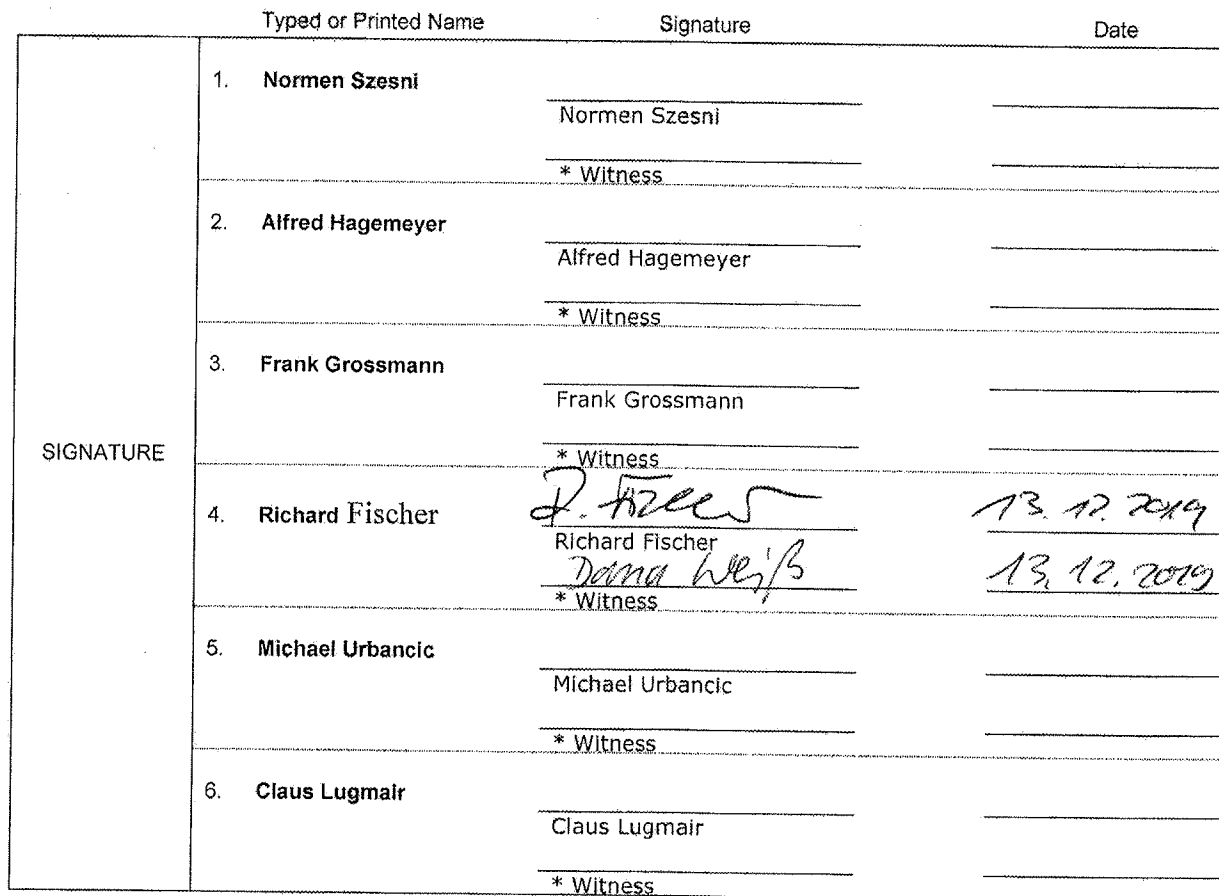 Typed or Printed Name Signature Date
SIGNATURE
1. Normen Szesni
Normen Szesni
* Witness
2. Alfred Hagemeyer
Alfred Hagemeyer
* Witness
3. Frank Grossmann
Frank Grossmann
* Witness
4. Richard Fischer R. Fischer 13.12.2019
Richard Fischer
Dana Weiß 13.12.2019
* Witness
5. Michael Urbancic
Michael Urbancic
* Witness
6. Claus Lugmair
Claus Lugmair
* Witness